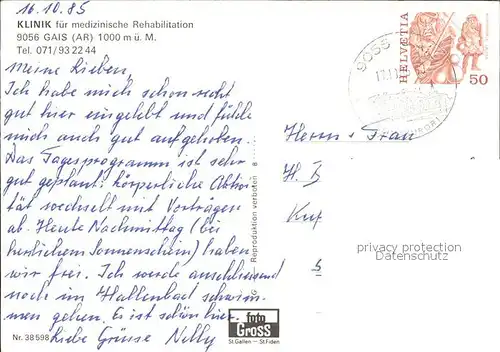 16.10.85
KLINIK für medizinische Rehabilitation
9056 GAIS (AR) 1000 m ü. M.
Tel. 071/93 22 44
Meine Lieben,
Ich habe mich schon recht
gut hier eingelebt und fühle
mich auch gut aufgehoben.
Das Tagesprogramm ist sehr
gut geplant: körperliche Aktivi-
tät wechselt mit Vorträgen
ab. Heute Nachmittag (bei
herrlichem Sonnenschein) haben
wir frei. Ich werde anschliessend
noch im Hallenbad schwim-
men gehen. Es ist schön hier.
Liebe Grüsse Nelly
Nr. 38598
Reproduktion verboten
foto
GROSS
St. Gallen - St. Fiden
HELVETIA
50
9056
Herrn + Frau
H. B
privacy protection
watermark